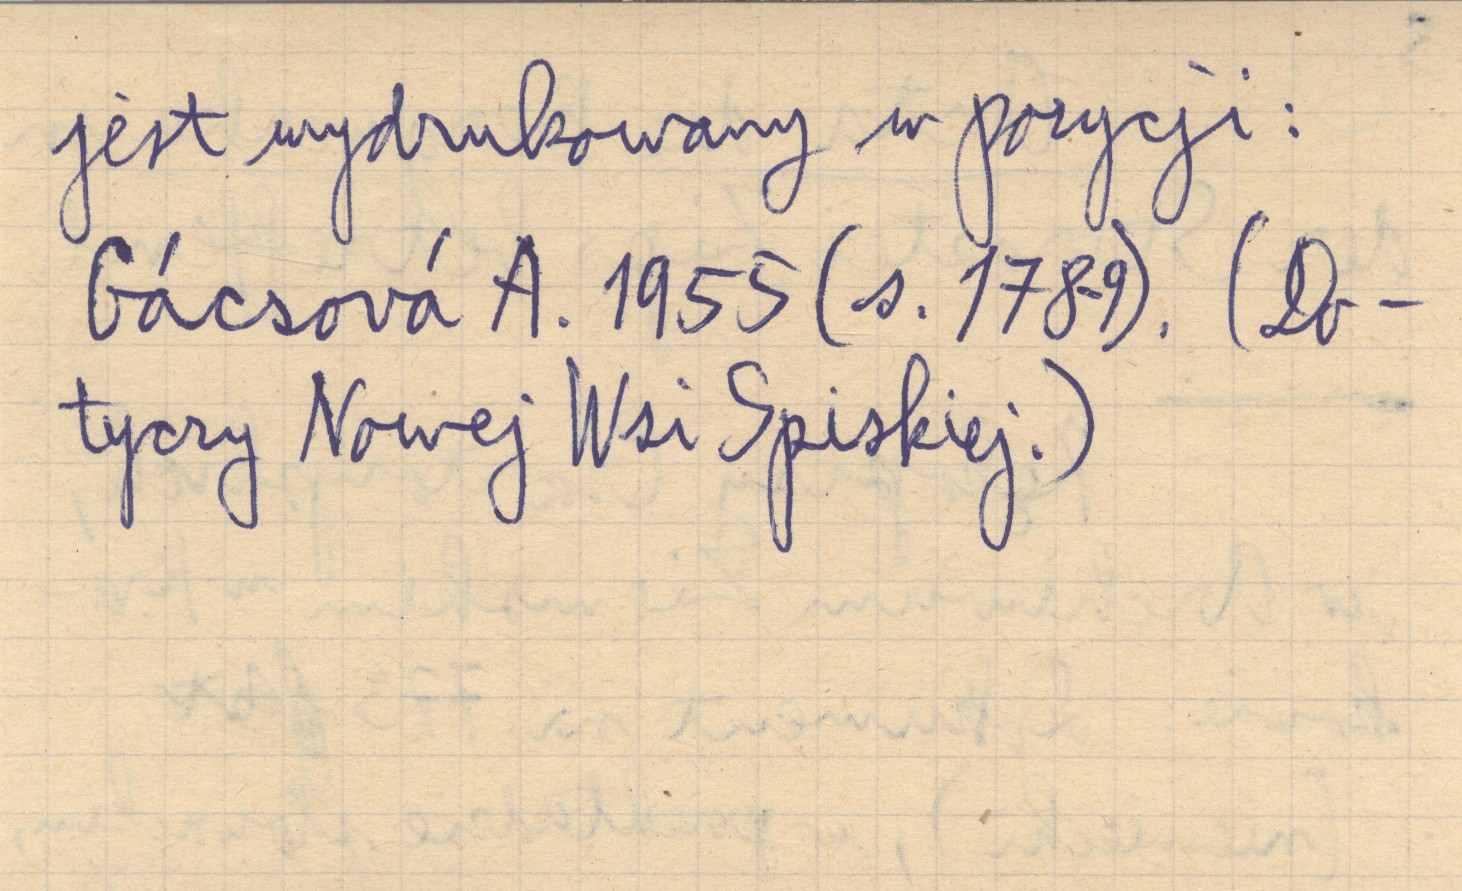 jest wydrukowany w pozycji:
Gácsová A. 1955 (s. 178-9). (Do-
tyczy Nowej Wsi Spiskiej.)